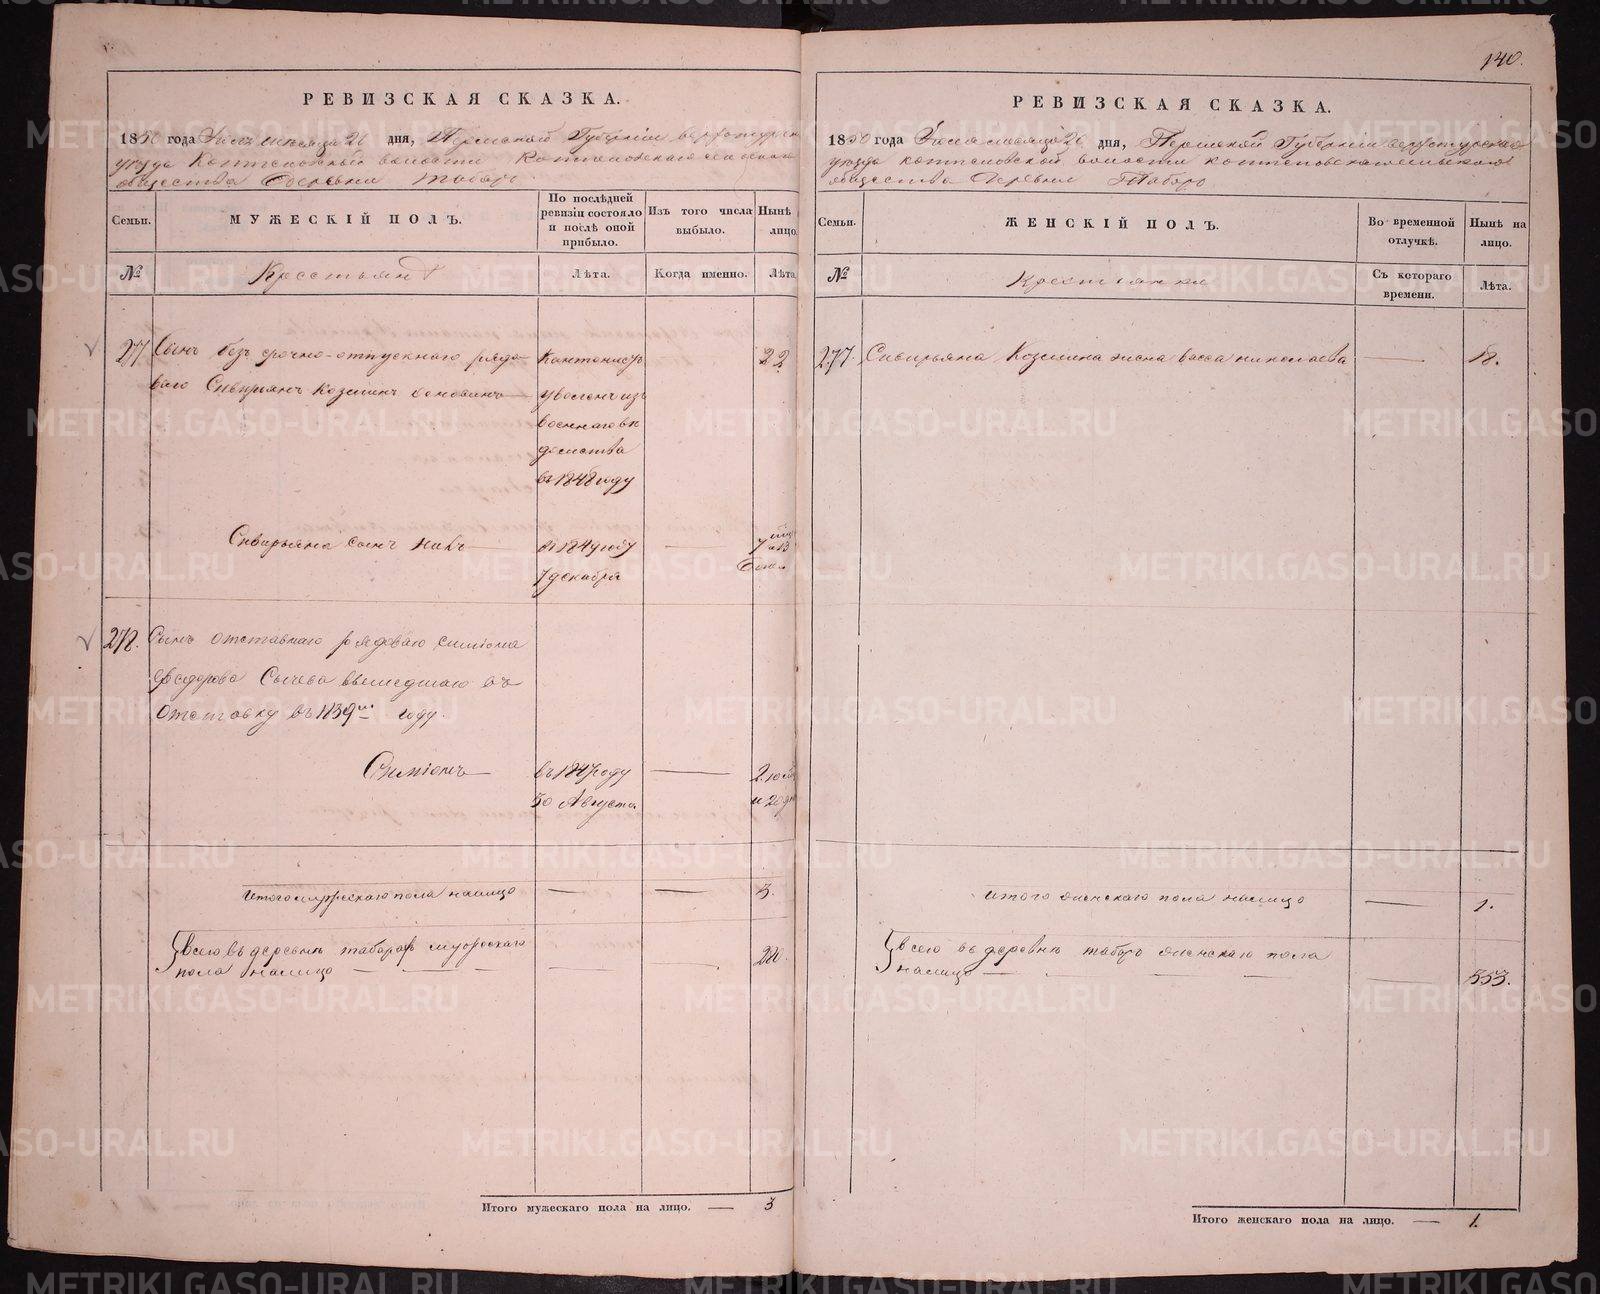 140.
РЕВИЗСКАЯ СКАЗКА.
1850 года Июля месяца 20 дня, Пермской Губернии Верхотурск
уезда Коптеловской волости Коптеловскаго сельскаго
общества Деревни Таборъ
Семьи.
МУЖЕСКІЙ ПОЛЪ.
По послѣдней ревизіи состояло и послѣ оной прибыло.
Изъ того числа выбыло.
Нынѣ лицо.
№
Крестьянъ
Лѣта.
Когда именно.
Лѣта
277. Сынъ безсрочно-отпускнаго рядо- Кантонистъ 22
ваго Сивирьянъ Козминъ уволенъ изъ
военнаго вѣ
домства
въ 1848 году
Сивирьяна сынъ въ 1849 году 7
7 декабря
278. Сынъ отставнаго рядоваго Симіона
Федорова Сычева вышедшаго въ
Отставку въ 1839мъ году.
Симіонъ въ 1847 году 2. 10 м
30 Августа и 20 дн
Итого мужескаго пола налицо 3.
Всего въ деревнѣ таборахъ мужескаго
пола налицо
Итого мужескаго пола на лицо. — 3
РЕВИЗСКАЯ СКАЗКА.
1850 года Июля месяца 20 дня, Пермской Губернии Верхотурскаго
уезда коптеловской волости коптеловскаго сельскаго
общества Деревни Таборъ
Семьи.
ЖЕНСКІЙ ПОЛЪ.
Во временной отлучкѣ.
Нынѣ на лицо.
№
Крестьянки
Съ котораго времени.
Лѣта.
277. Сивирьяна Козмина жена васса николаева — 18.
итого женскаго пола налицо — 1.
Всего въ деревнѣ таборѣ женскаго пола
налицо — 553.
Итого женскаго пола на лицо. — 1.
METRIKI.GASO-URAL.RU